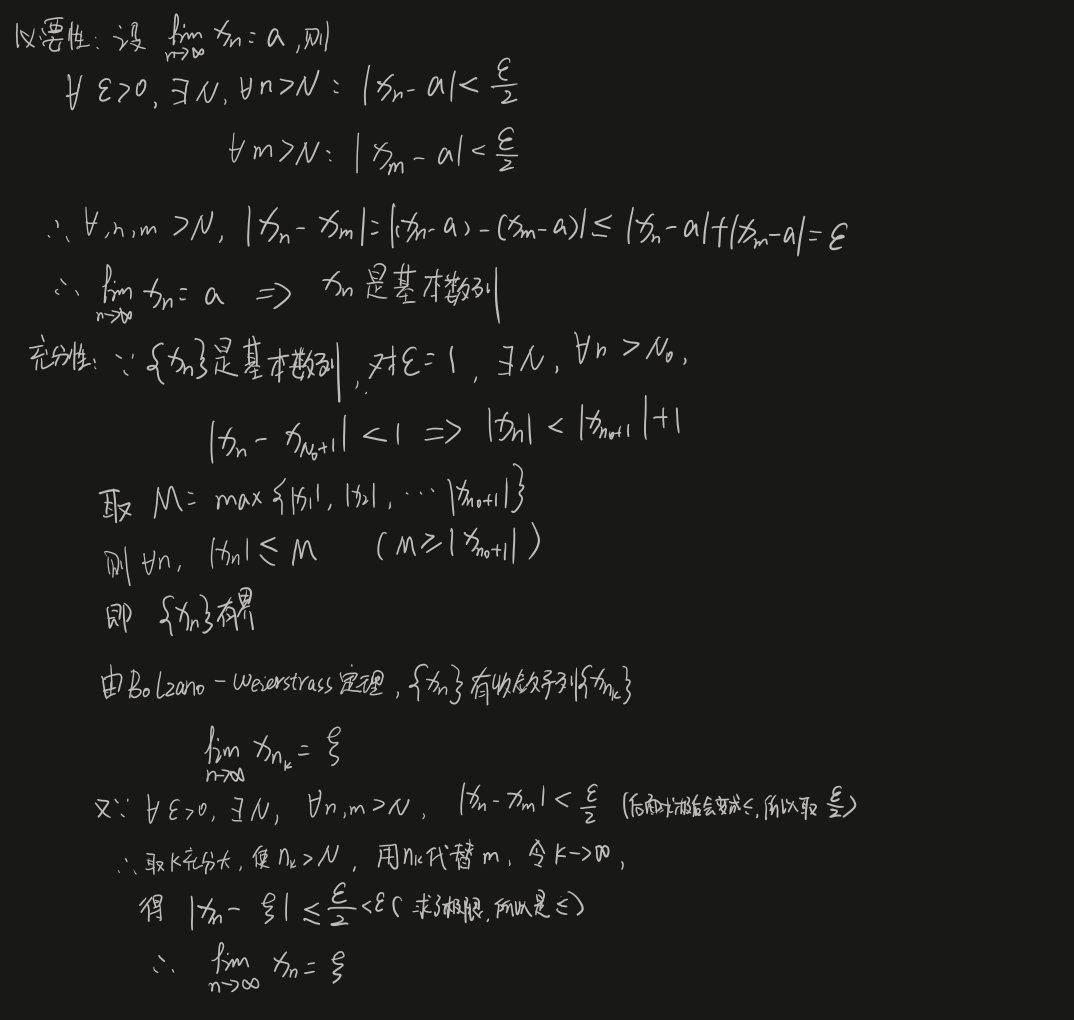 必要性: 设 lim_{n→∞} xₙ = a, 则
∀ ε>0, ∃N, ∀n>N: |xₙ - a| < ε/2
∀m>N: |xₘ - a| < ε/2
∴ ∀,n,m >N, |xₙ - xₘ| = |(xₙ-a) - (xₘ-a)| ≤ |xₙ-a|+|xₘ-a| = ε
∴ lim_{n→∞} xₙ = a ⇒ xₙ 是基本数列
充分性: ∵ {xₙ}是基本数列, 对ε=1, ∃N, ∀n > N₀,
|xₙ - x_{N₀+1}| < 1 ⇒ |xₙ| < |x_{n₀+1}| + 1
取 M = max{|x₁|, |x₂|, ⋯ |x_{n₀+1}|}
则 ∀n, |xₙ| ≤ M (M ≥ |x_{n₀+1}|)
即 {xₙ}有界
由Bolzano-Weierstrass定理, {xₙ}有收敛子列{x_{n_k}}
lim_{n→∞} x_{n_k} = ξ
又∵ ∀ε>0, ∃N, ∀n,m>N, |xₙ-xₘ| < ε/2 (后面求极限后会变成≤, 所以取 ε/2)
∴ 取K充分大, 使 n_k>N, 用n_k代替m, 令k→∞,
得 |xₙ - ξ| ≤ ε/2 <ε (求了极限, 所以是≤)
∴ lim_{n→∞} xₙ = ξ